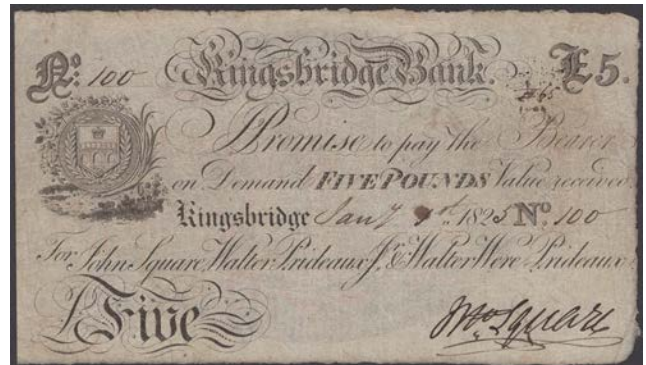 No: 100 Kingsbridge Bank. £5.
I Promise to pay the Bearer
on Demand FIVE POUNDS Value received
Kingsbridge Jany 1st 1825 No 100
For John Square, Walter Prideaux Jr. & Walter Were Prideaux
£ Five Jno Square